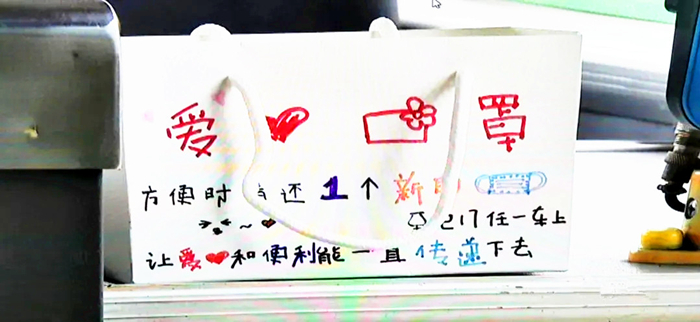 爱 ❤ 口罩
方便时 还 1 个 新
至 217 任一车上
~ ❤
让爱❤和便利能一直传递下去